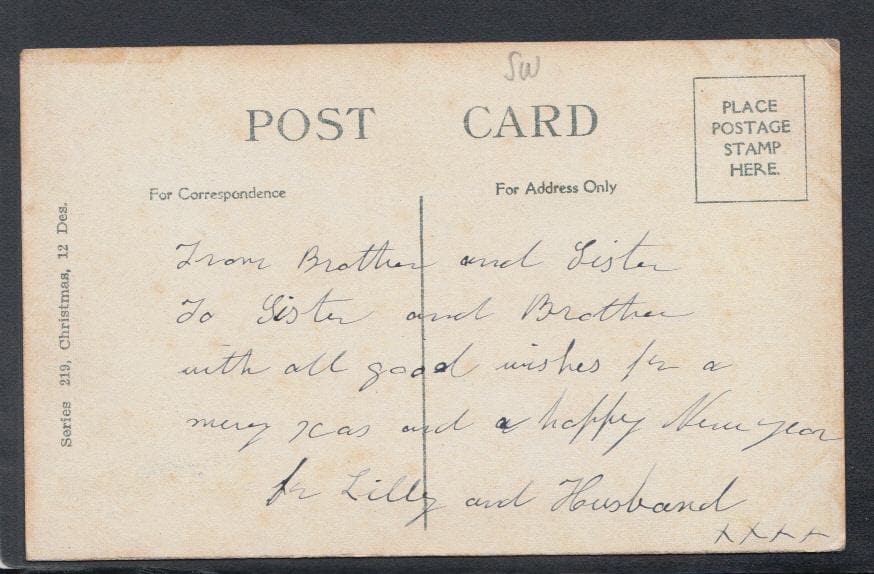 SW
POST CARD
PLACE
POSTAGE
STAMP
HERE.
For Correspondence
For Address Only
Series 219, Christmas, 12 Des.
From Brother and Sister
To Sister and Brother
with all good wishes for a
merry xcas and a happy New year
fr Lilly and Husband
x x x x